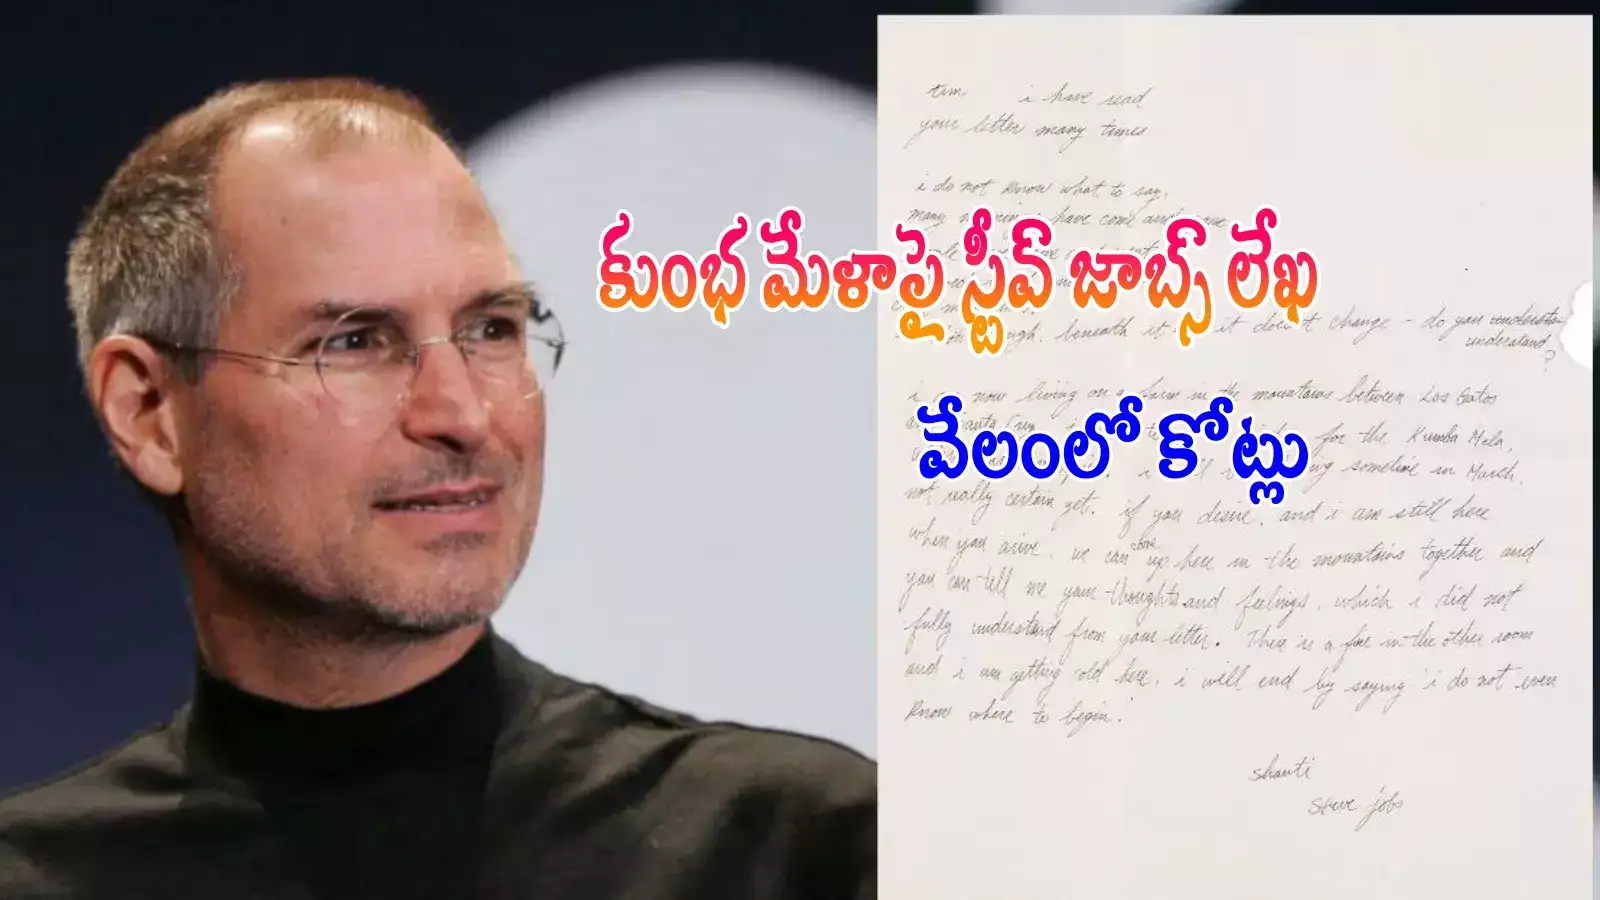 tim i have read
your letter many times
i do not know what to say.
many mornings have come and gone
కుంభ మేళాపై స్టీవ్ జాబ్స్ లేఖ
beneath it. it doesn't change - do you understan
understand
?
now living on a farm in the mountains between Los Gatos
for the Kumba Mela,
వేలంలో కోట్లు
sometime in March,
not really certain yet. if you desire, and i am still here
when you arive, we can come up here in the mountains together and
you can tell me your thoughts and feelings, which i did not
fully understand from your letter. There is a fire in the other room
and i am getting cold here. i will end by saying 'i do not even
know where to begin.'
shanti
steve jobs